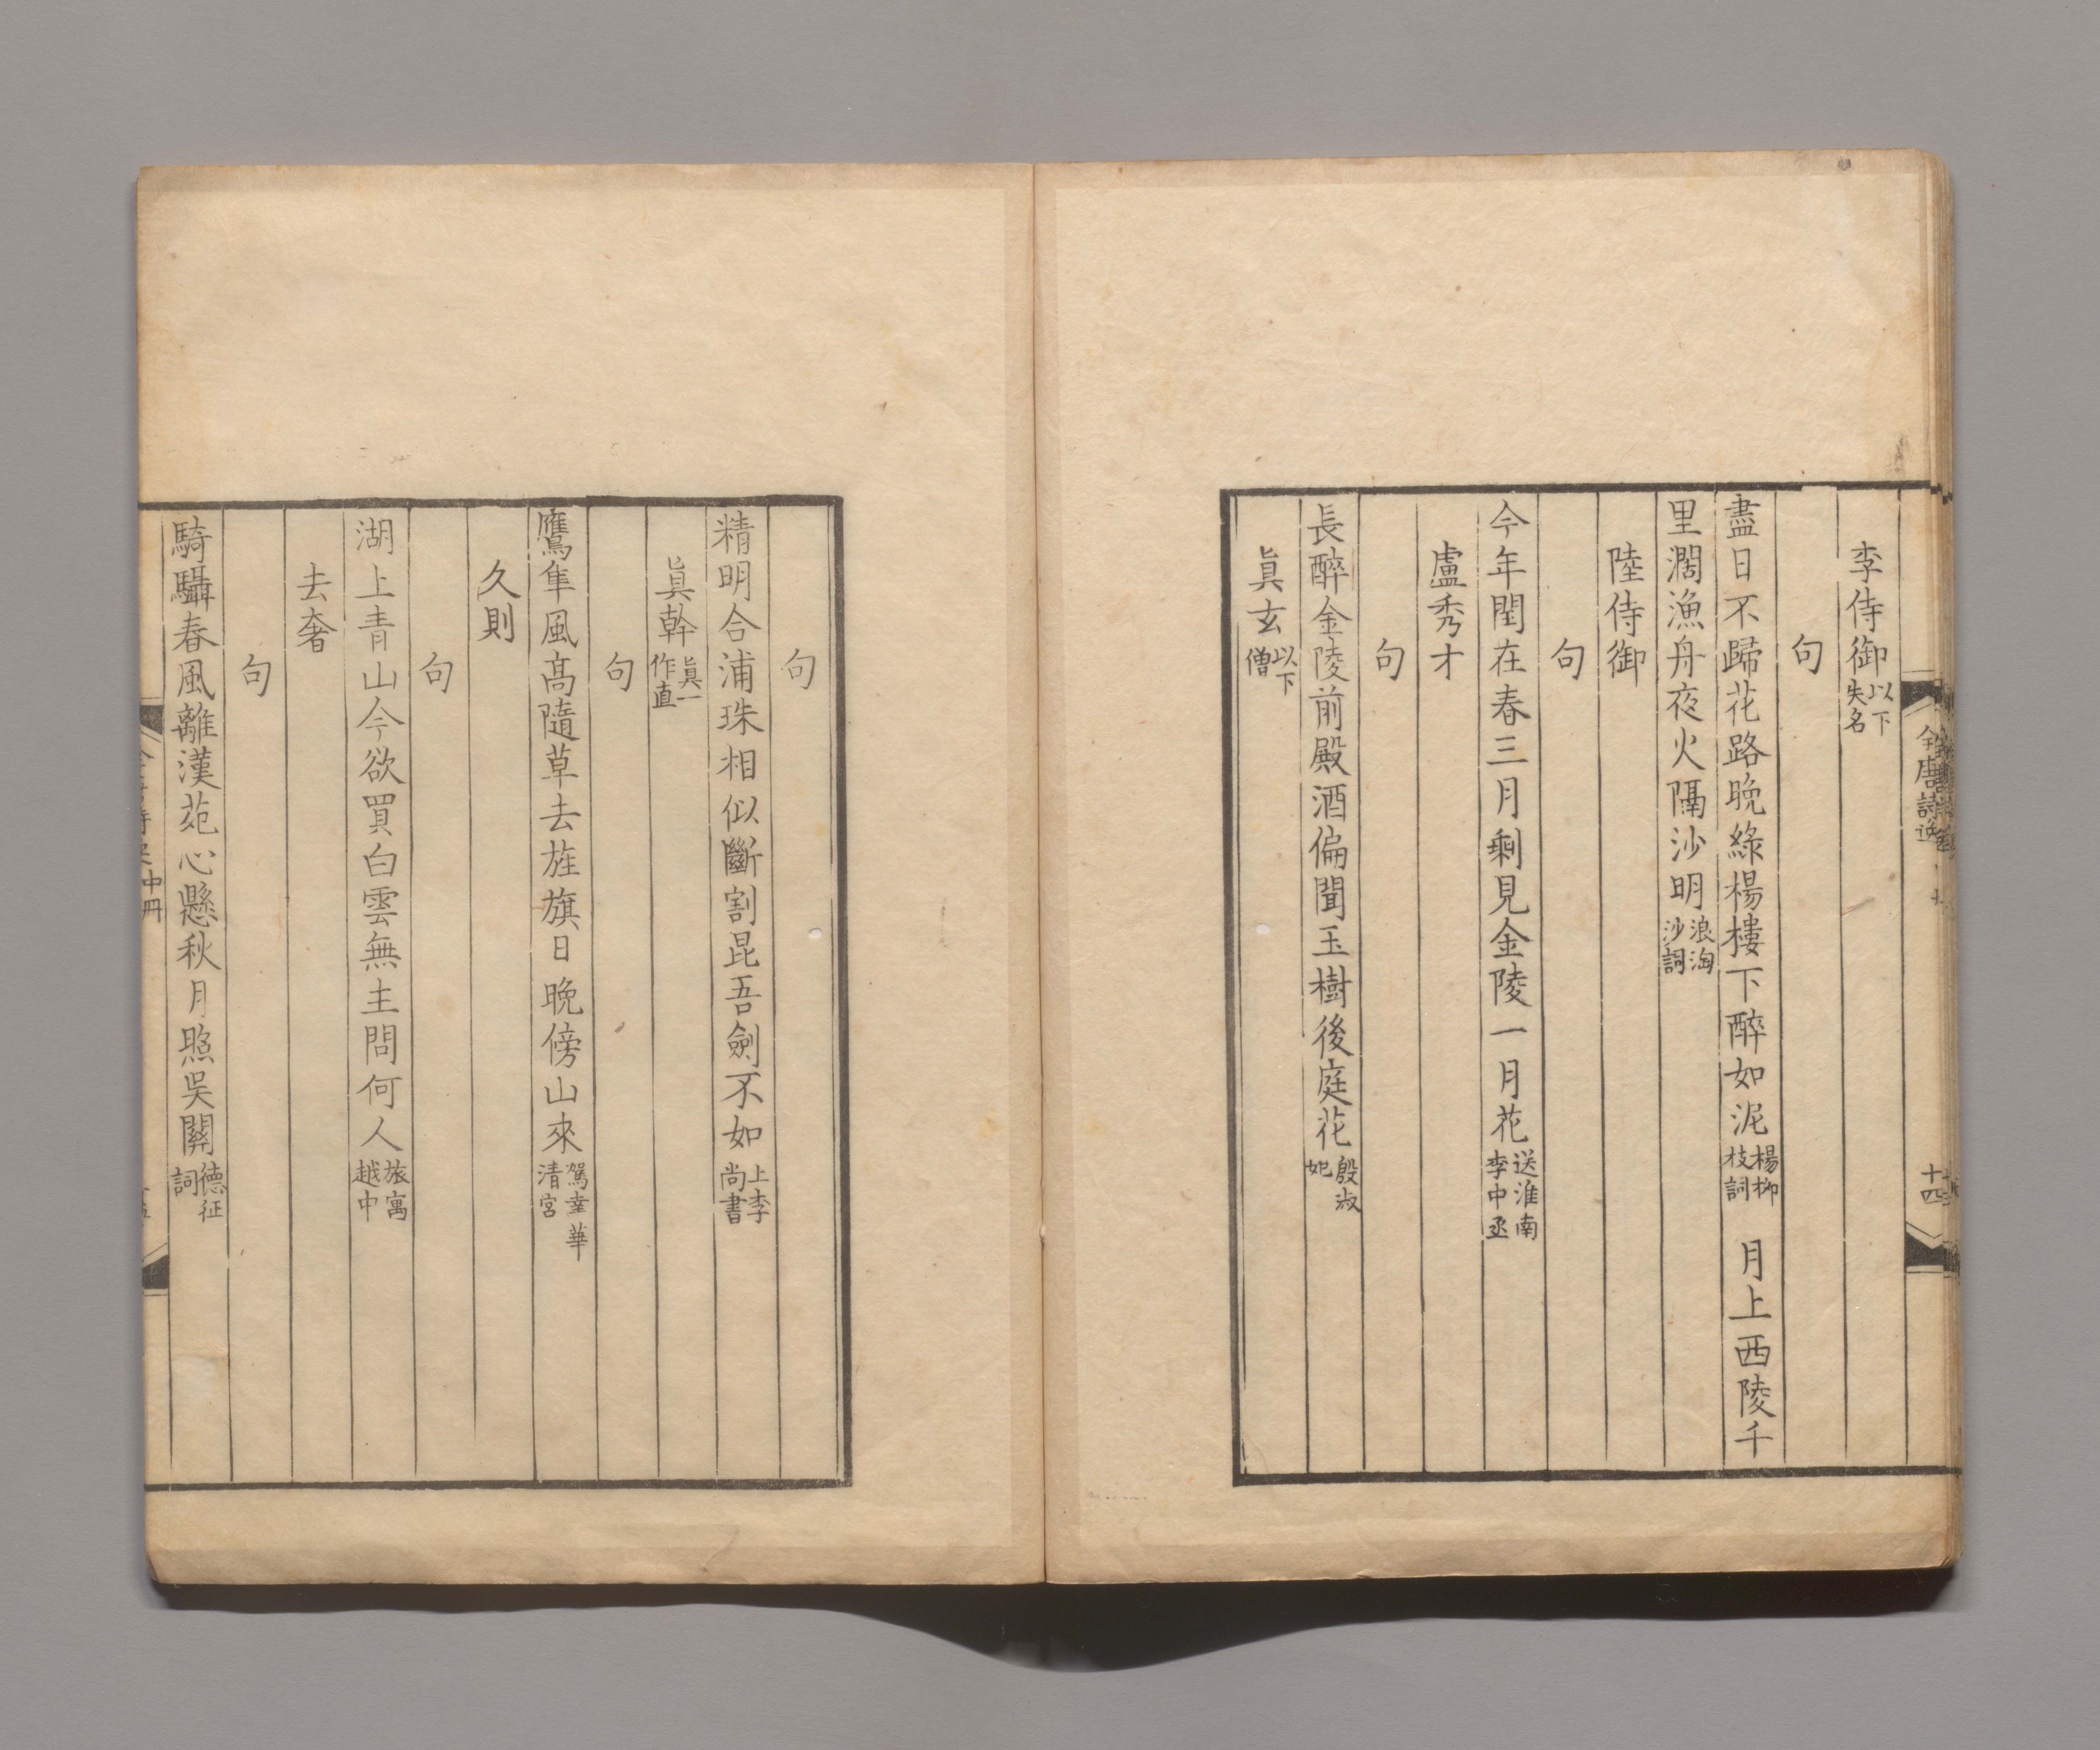 全唐詩逸
十四
李侍御以下失名
句
盡日不歸花路晚綠楊樓下醉如泥楊柳枝詞 月上西陵千
里濶漁舟夜火隔沙明浪淘沙詞
陸侍御
句
今年閏在春三月剩見金陵一月花送淮南李中丞
盧秀才
句
長醉金陵前殿酒偏聞玉樹後庭花殷淑妃
眞玄以下僧
句
精明合浦珠相似斷割昆吾劍不如上李尚書
眞幹眞一作直
句
鷹隼風高隨草去旌旗日晚傍山來駕幸華清宮
久則
句
湖上青山今欲買白雲無主問何人旅寓越中
去奢
句
騎驕春風離漢苑心懸秋月照吳關德征詞
中冊